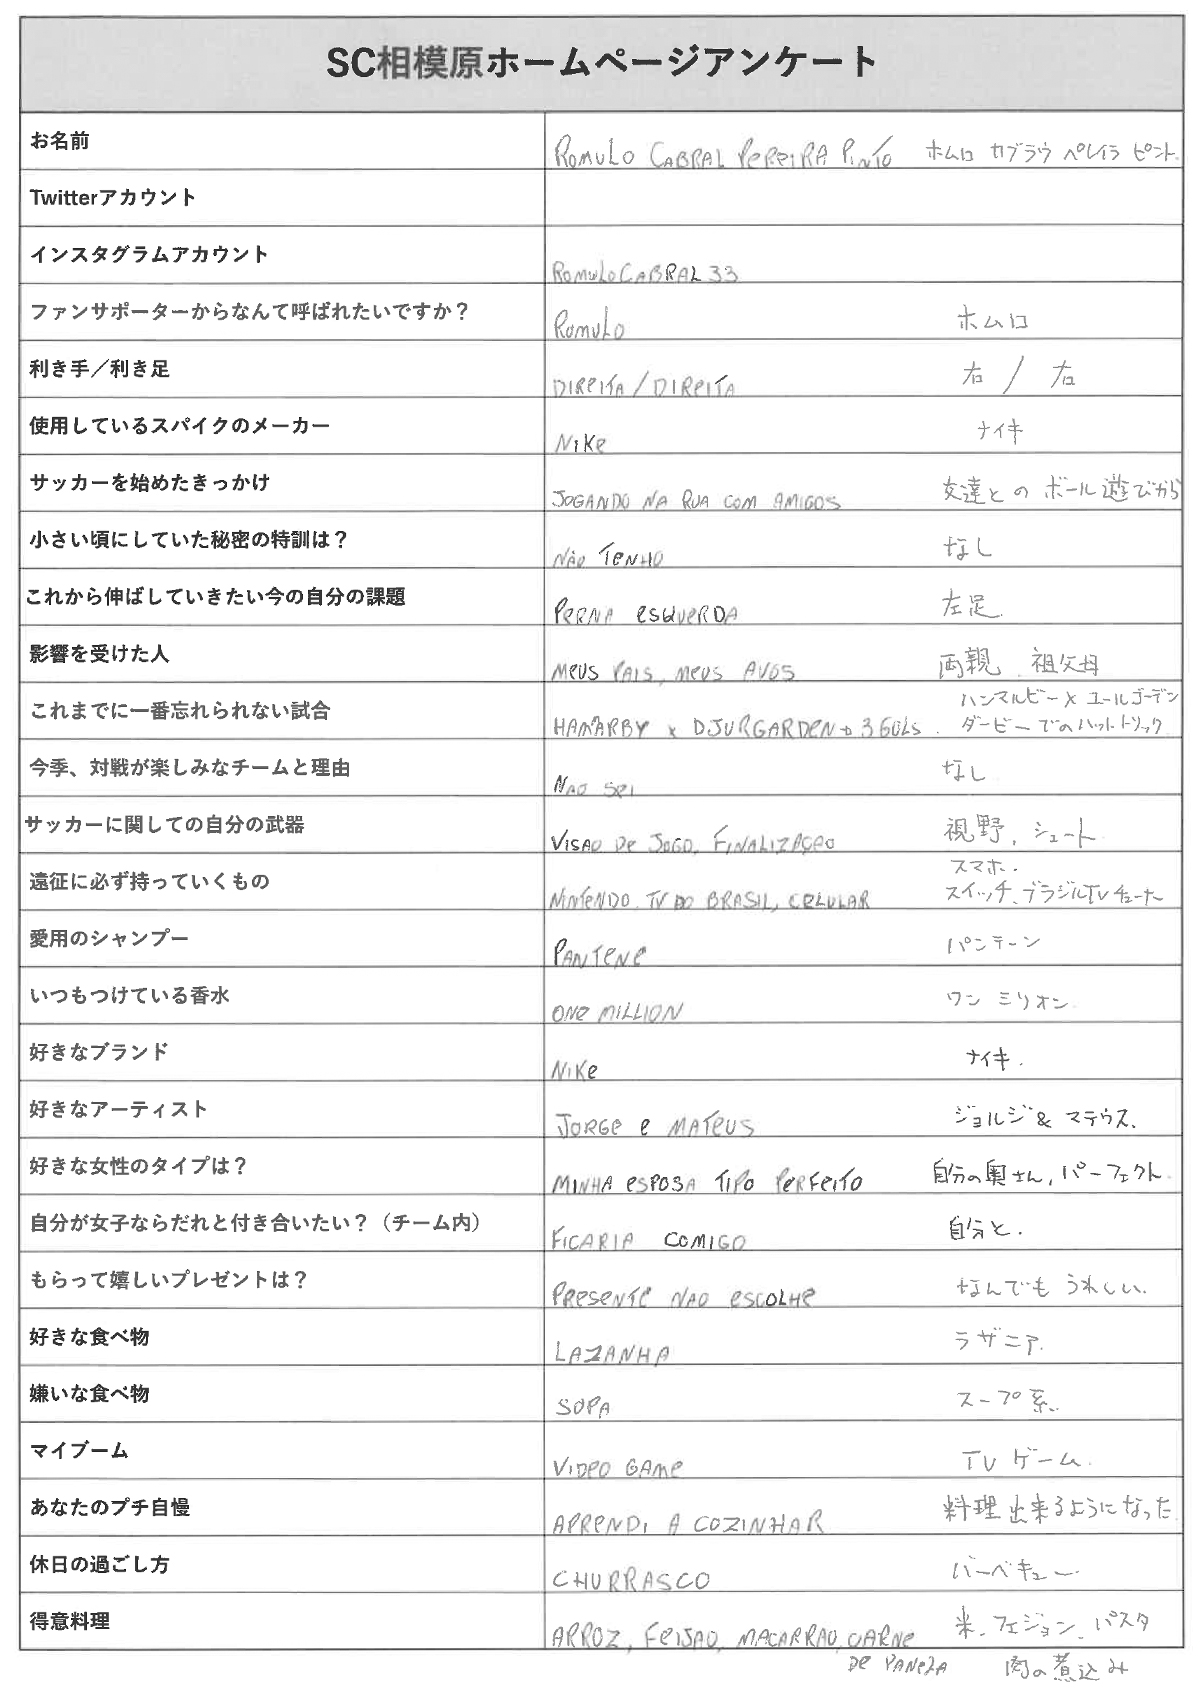 SC相模原ホームページアンケート
お名前 ROMULO CABRAL PEREIRA PINTO ホムロ カブラウ ペレイラ ピント.
Twitterアカウント
インスタグラムアカウント ROMULOCABRAL33
ファンサポーターからなんて呼ばれたいですか？ ROMULO ホムロ
利き手／利き足 DIREITA / DIREITA 右 / 右
使用しているスパイクのメーカー NIKE ナイキ
サッカーを始めたきっかけ JOGANDO NA RUA COM AMIGOS 友達との ボール遊びから
小さい頃にしていた秘密の特訓は？ NÃO TENHO なし
これから伸ばしていきたい今の自分の課題 PERNA ESQUERDA 左足.
影響を受けた人 MEUS PAIS, MEUS AVÓS 両親. 祖父母
これまでに一番忘れられない試合 HAMARBY x DJURGARDEN → 3 GOLS. ハンマルビー x ユールゴーデン
ダービーでのハットトリック
今季、対戦が楽しみなチームと理由 NAO SEI なし
サッカーに関しての自分の武器 VISAO DE JOGO, FINALIZAÇAO 視野, シュート.
遠征に必ず持っていくもの NINTENDO. TV DO BRASIL, CELULAR スマホ.
スイッチ、ブラジルTVチューナー
愛用のシャンプー PANTENE パンテーン
いつもつけている香水 ONE MILLION ワン ミリオン.
好きなブランド NIKE ナイキ.
好きなアーティスト JORGE E MATEUS ジョルジ & マテウス.
好きな女性のタイプは？ MINHA ESPOSA TIPO PERFEITO 自分の奥さん, パーフェクト.
自分が女子ならだれと付き合いたい？（チーム内） FICARIA COMIGO 自分と.
もらって嬉しいプレゼントは？ PRESENTE NAO ESCOLHE なんでも うれしい.
好きな食べ物 LAZANHA ラザニア.
嫌いな食べ物 SOPA スープ系.
マイブーム VIDEO GAME TV ゲーム.
あなたのプチ自慢 APRENDI A COZINHAR 料理出来るようになった.
休日の過ごし方 CHURRASCO バーベキュー.
得意料理 ARROZ, FEIJAO, MACARRAO, CARNE 米、フェジョン、パスタ
DE PANELA 肉の煮込み